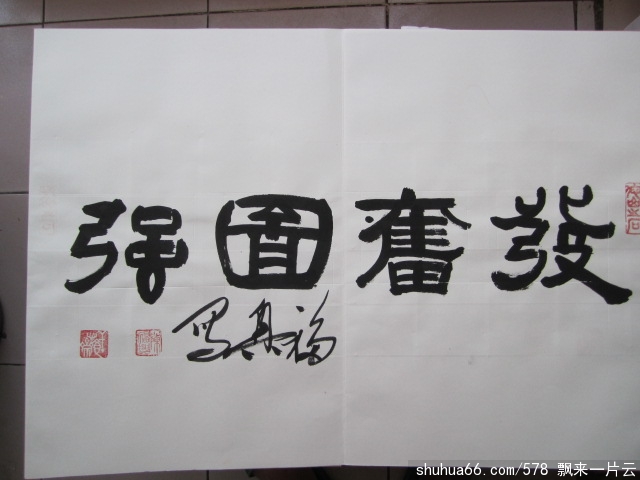 發奮圖强
福其写
shuhua66.com/578 飘来一片云